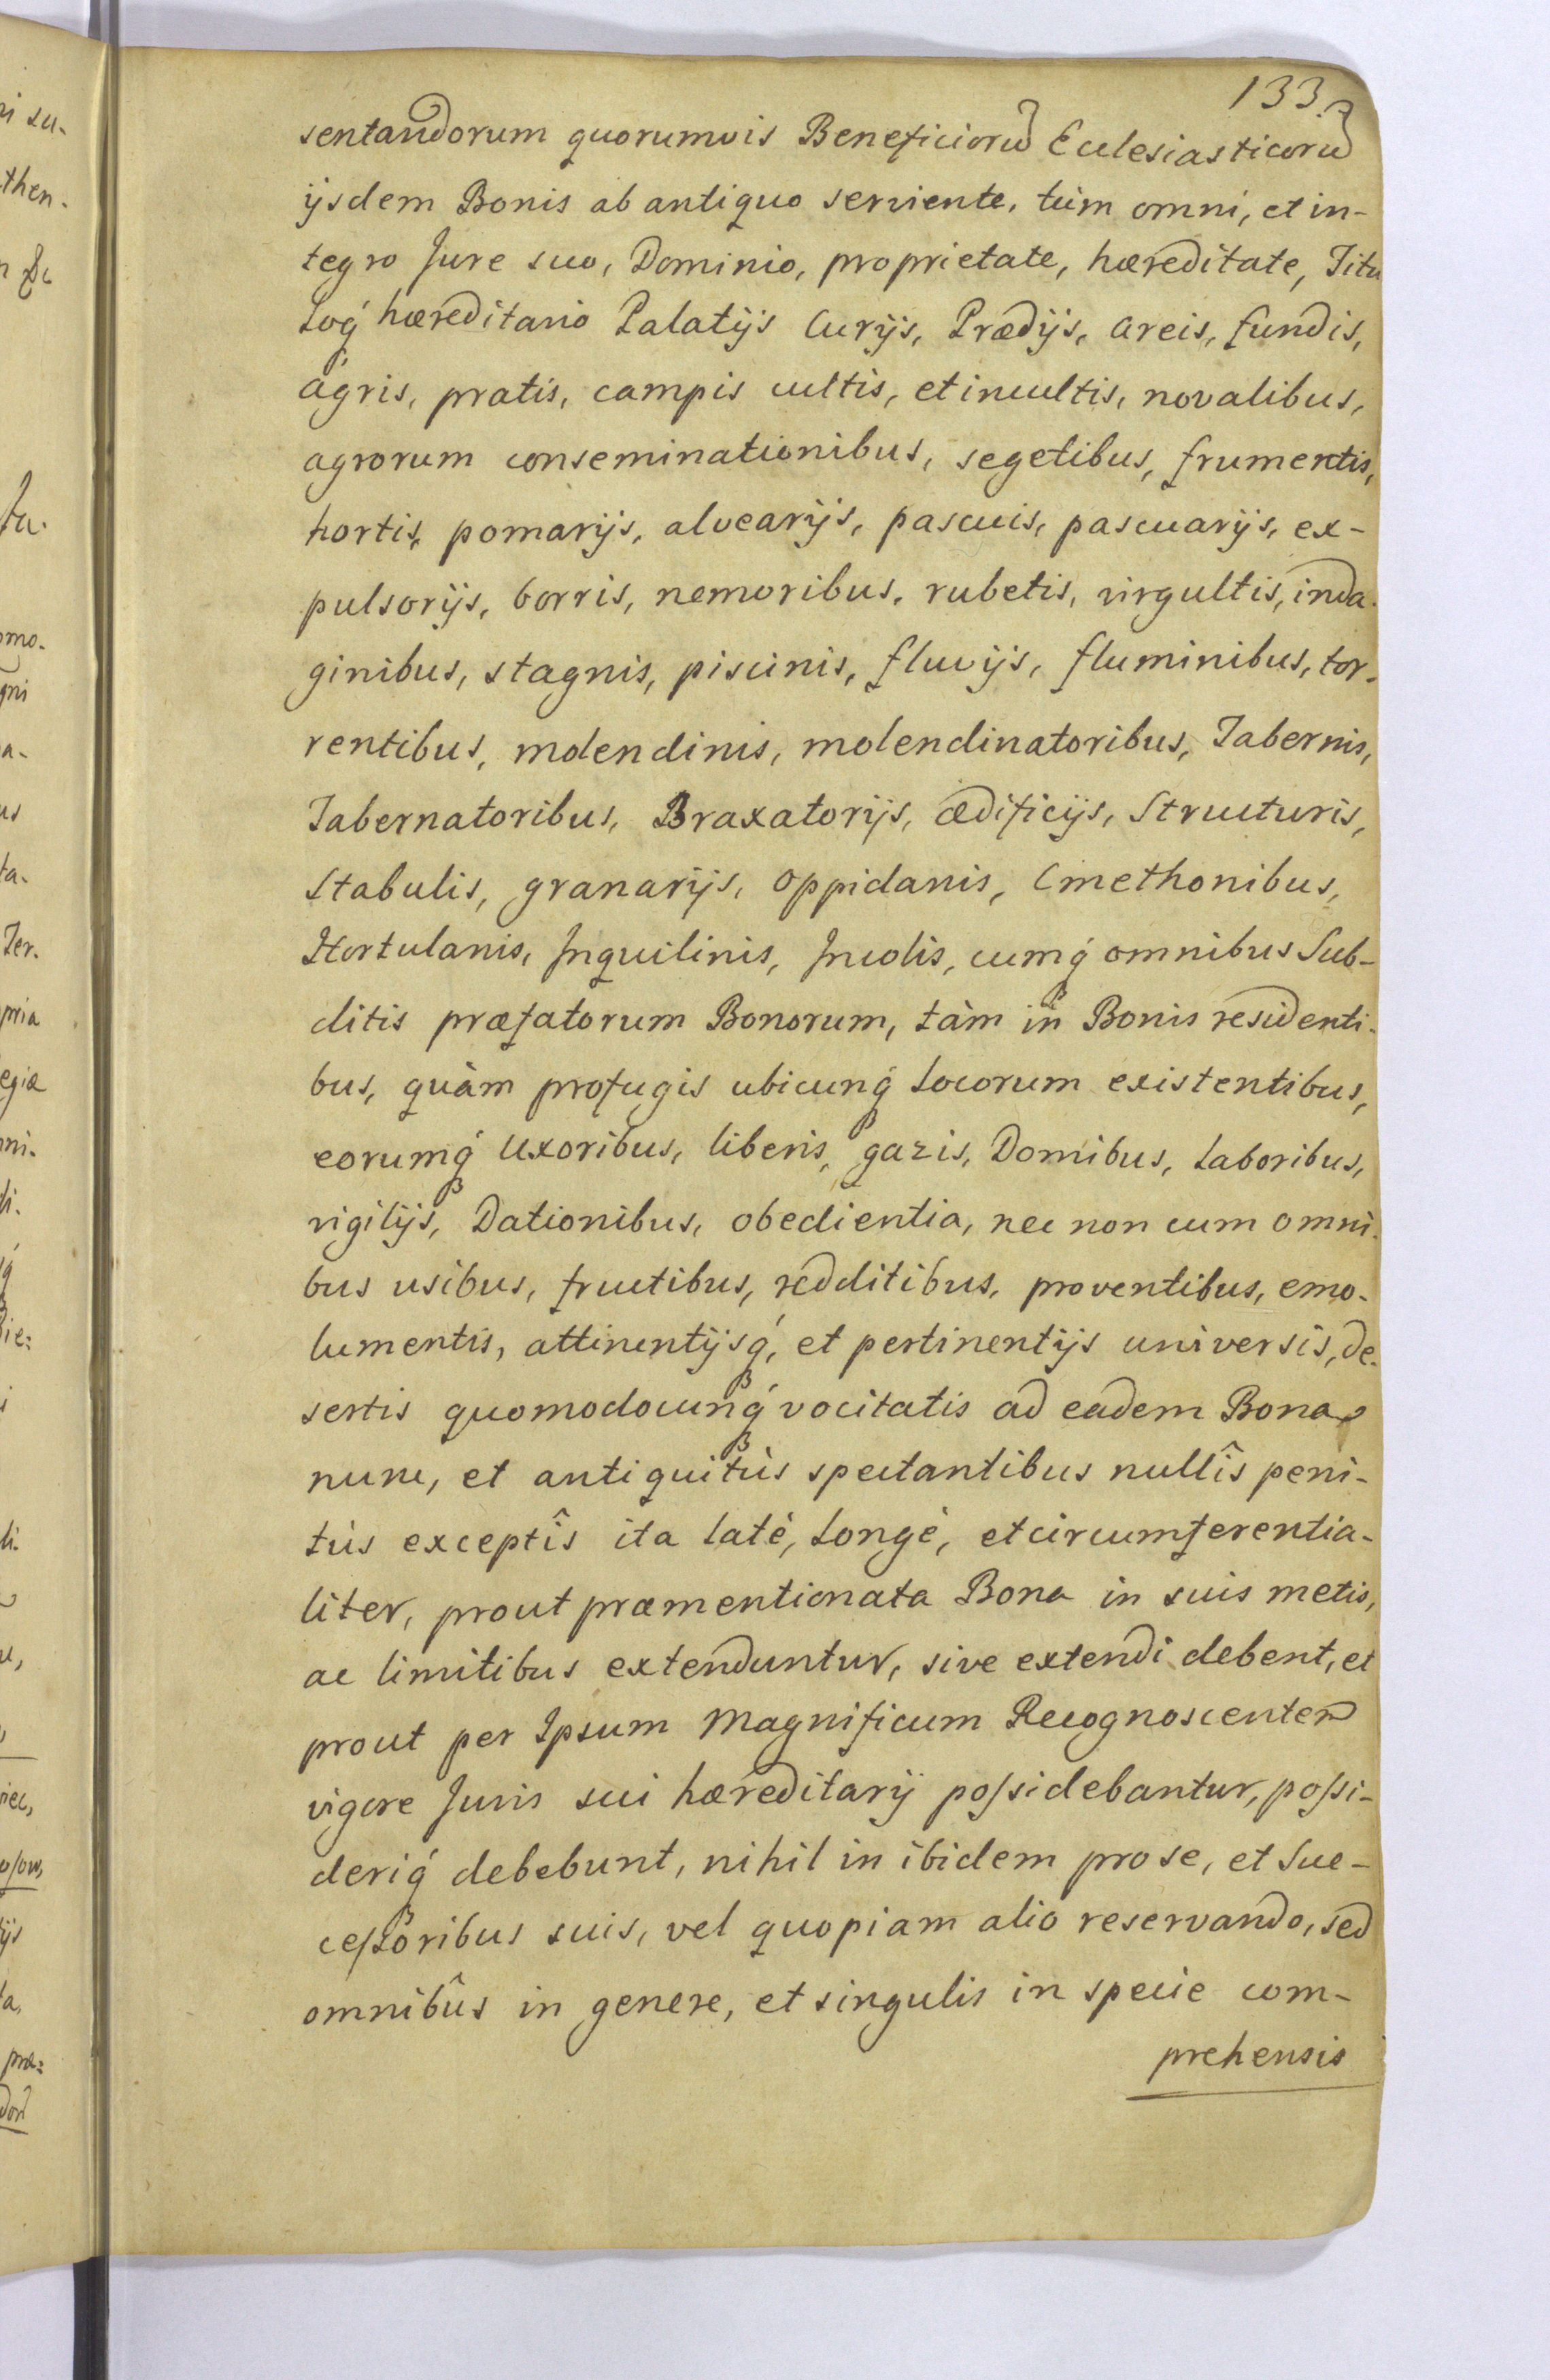 133.
sentandorum quorumvis Beneficiorū Ecclesiasticorū
ijsdem Bonis ab antiquo serviente, tùm omni, et in-
tegro Jure suo, Dominio, proprietate, hæreditate, Titu
Loq́ hæreditario Palatijs Curijs, Prædijs, areis, fundis,
agris, pratis, campis cultis, et incultis, novalibus,
agrorum conseminationibus, segetibus, frumentis,
hortis, pomarijs, alvearijs, pascuis, pascuarijs, ex-
pulsorijs, borris, nemoribus, rubetis, virgultis, inda-
ginibus, stagnis, piscinis, fluvijs, fluminibus, tor-
rentibus, molendinis, molendinatoribus, Tabernis,
Tabernatoribus, Braxatorijs, ædificijs, Structuris,
Stabulis, granarijs, oppidanis, Cmethonibus,
Hortulanis, Inquilinis, Incolis, cumq́ omnibus Sub-
ditis præfatorum Bonorum, tàm in Bonis residenti-
bus, quàm profugis ubicunq́ Locorum existentibus,
eorumq́ Uxoribus, liberis, gazis, Domibus, Laboribus,
vigilijs, Dationibus, obedientia, nec non cum omni-
bus usibus, fructibus, redditibus, proventibus, emo-
lumentis, attinentijsq́, et pertinentijs universis, de-
sertis quomodocunq́ vocitatis ad eadem Bona
nunc, et antiquitùs spectantibus nullîs peni-
tùs exceptîs ita latè, Longè, et circumferentia-
liter, prout præmentionata Bona in suis metis,
ac limitibus extenduntur, sive extendi debent, et
prout per Ipsum Magnificum Recognoscentem
vigore Juris sui hæreditarij possidebantur, possi-
deriq́ debebunt, nihil in ibidem pro se, et Suc-
cessoribus suis, vel quopiam alio reservando, sed
omnibûs in genere, et singulis in specie com-
prehensis